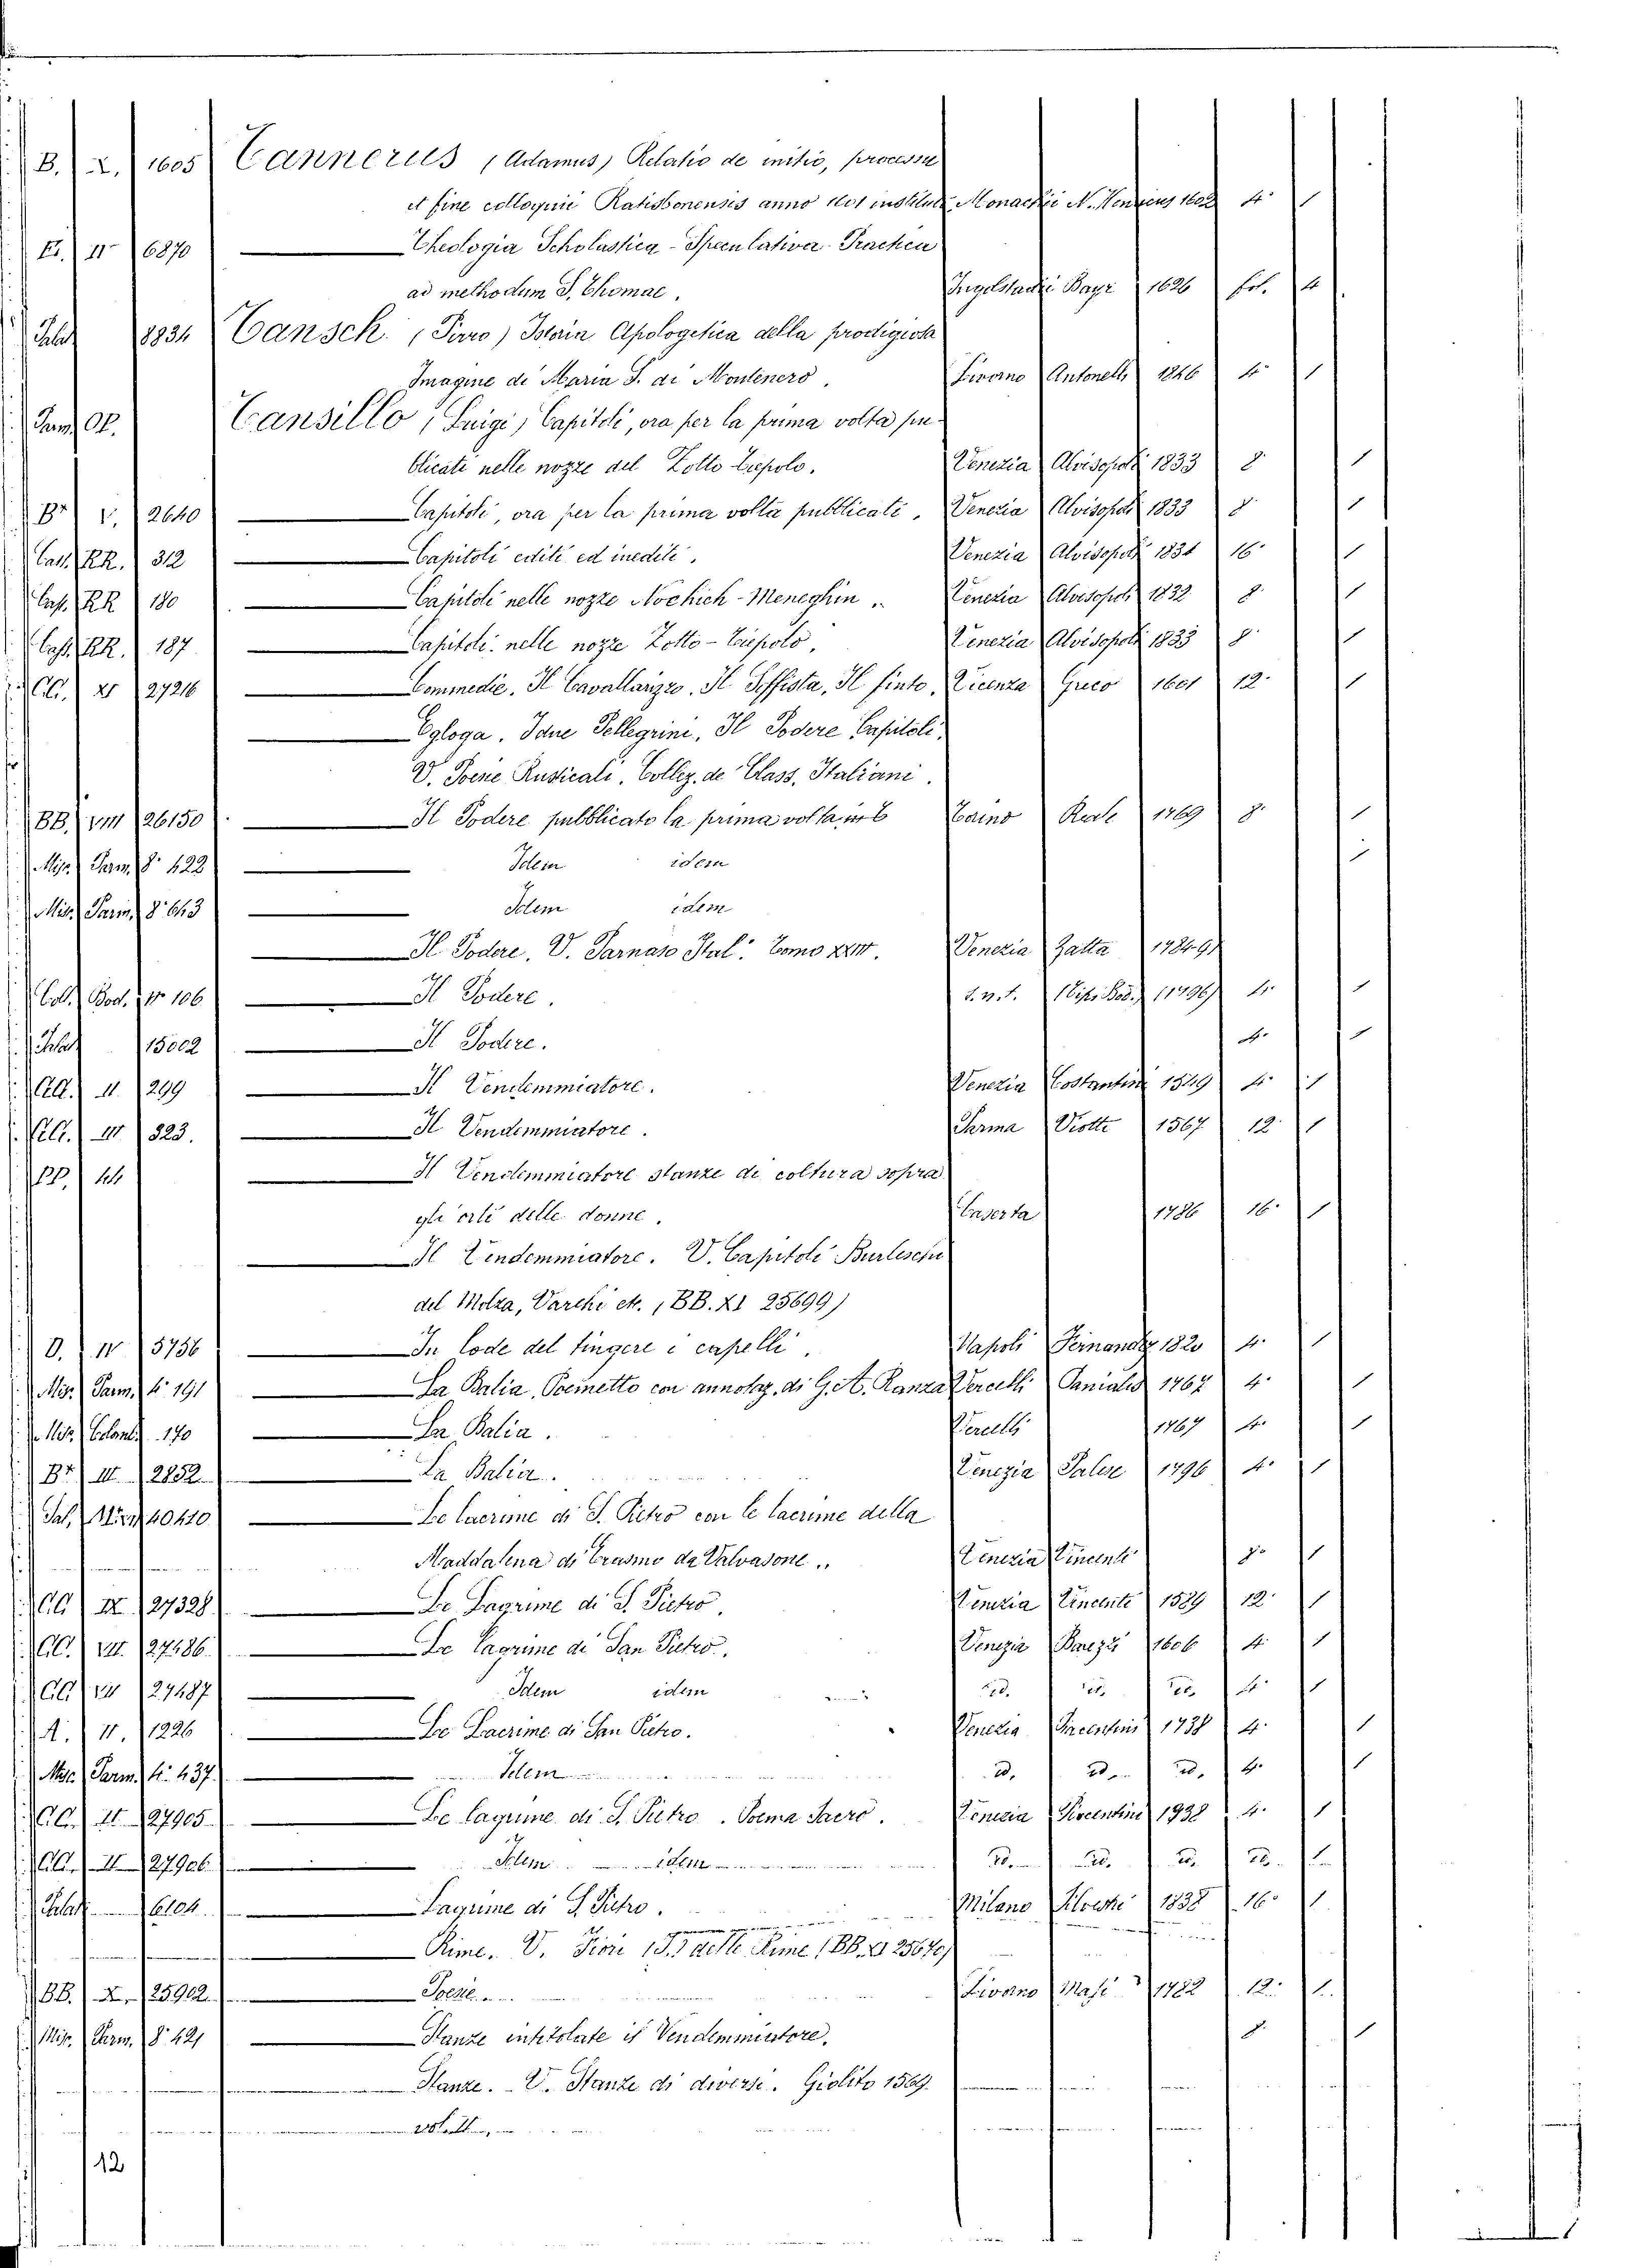 B. X. 1605 Tannerus (Adamus) Relatio de initio, processu
et fine colloquii Ratisbonensis anno 1601 institute Monachii N. Henricus 1602 4° 1
6870 Theologia Scholastica - Speculativa - Practica
ad methodum S. Thomae. Ingolstadii Bayr 1626 fol. 4
Palat 8834 Tansch. (Pirro) Istoria Apologetica della prodigiosa
Imagine di Maria S. di Montenero. Livorno Antonelli 1846 4° 1
Tansillo (Luigi) Capitoli, ora per la prima volta pu-
blicati nelle nozze del Zotto Tiepolo. Venezia Alvisopoli 1833 8° 1
Br V. 2640 Capitoli, ora per la prima volta pubblicati. Venezia Alvisopoli 1833 8° 1
RR. 312 Capitoli editi ed inediti. Venezia Alvisopoli 1834 16° 1
RR 180 Capitoli nelle nozze Nochich-Meneghin. Venezia Alvisopoli 1832 8° 1
RR. 187 Capitoli nelle nozze Zotto-Tiepolo. Venezia Alvisopoli 1833 8° 1
CC. XI 27216 Commedie. Il Cavallarizzo, Il Soffista, Il finto. Vicenza Greco 1601 12° 1
Egloga. I due Pellegrini, Il Podere Capitoli.
V. Poesie Rusticali. Collez. de' Class. Italiani.
BB. VIII 26150 Il Podere pubblicato la prima volta Torino Reale 1769 8° 1
Misc. Parm. 8° 422 Idem idem 1
Misc. Parm. 8° 643 Idem idem
Il Podere. V. Parnaso Ital. Tomo XXIV. Venezia Zatta 1784-91
Coll. Bod. N° 106 Il Podere. s.n.t. (Tipi Bod.) (1796) 4° 1
Palat 15002 Il Podere. 4° 1
II. 299 Il Vendemmiatore. Venezia Costantini 1549 4° 1
III 323. Il Vendemmiatore. Parma Viotti 1567 12° 1
PP. 44 Il Vendemmiatore stanze di coltura sopra
gli orti delle donne. Caserta 1786 16° 1
Il Vendemmiatore. V. Capitoli Burleschi
del Molza, Varchi etc. (BB. XI 25699)
O. IV 5756 In lode del tingere i capelli. Napoli Fernandes 1820 4° 1
Misc. Parm. 4° 191 La Balia, Poemetto con annotaz. di G. A. Ranza Vercelli Panialis 1767 4° 1
Misc. Colomb. 170 La Balia. Vercelli 1767 4° 1
Br III 2852 La Balia. Venezia Palese 1796 4° 1
40410 Le lacrime di S. Pietro con le lacrime della
Maddalena di Erasmo da Valvasone. Venezia Vincenti 8° 1
CC IX 27328 Le Lagrime di S. Pietro. Venezia Vincenti 1589 12° 1
CC. VII. 27486 Le lagrime di San Pietro. Venezia Barezzi 1606 4° 1
CC VII 27487 Idem idem id. id. id. 4° 1
A. II. 1226 Le Lacrime di San Pietro. Venezia Piacentini 1738 4° 1
Misc. Parm. 4° 437 Idem id. id. id. 4° 1
CC. II 27905 Le lagrime di S. Pietro. Poema Sacro. Venezia Piacentini 1738 4° 1
CC. II 27906 Idem idem id. id. id. id. 1
Palat. 6104 Lagrime di S. Pietro. Milano Silvestri 1838 16° 1
Rime. V. Fiori delle Rime (BB. XI 25670)
BB. X. 25902 Poesie. Livorno Masi 1782 12° 1
Misc. Parm. 8° 421 Stanze intitolate il Vendemmiatore. 8° 1
Stanze. V. Stanze di diversi. Giolito 1569.
12